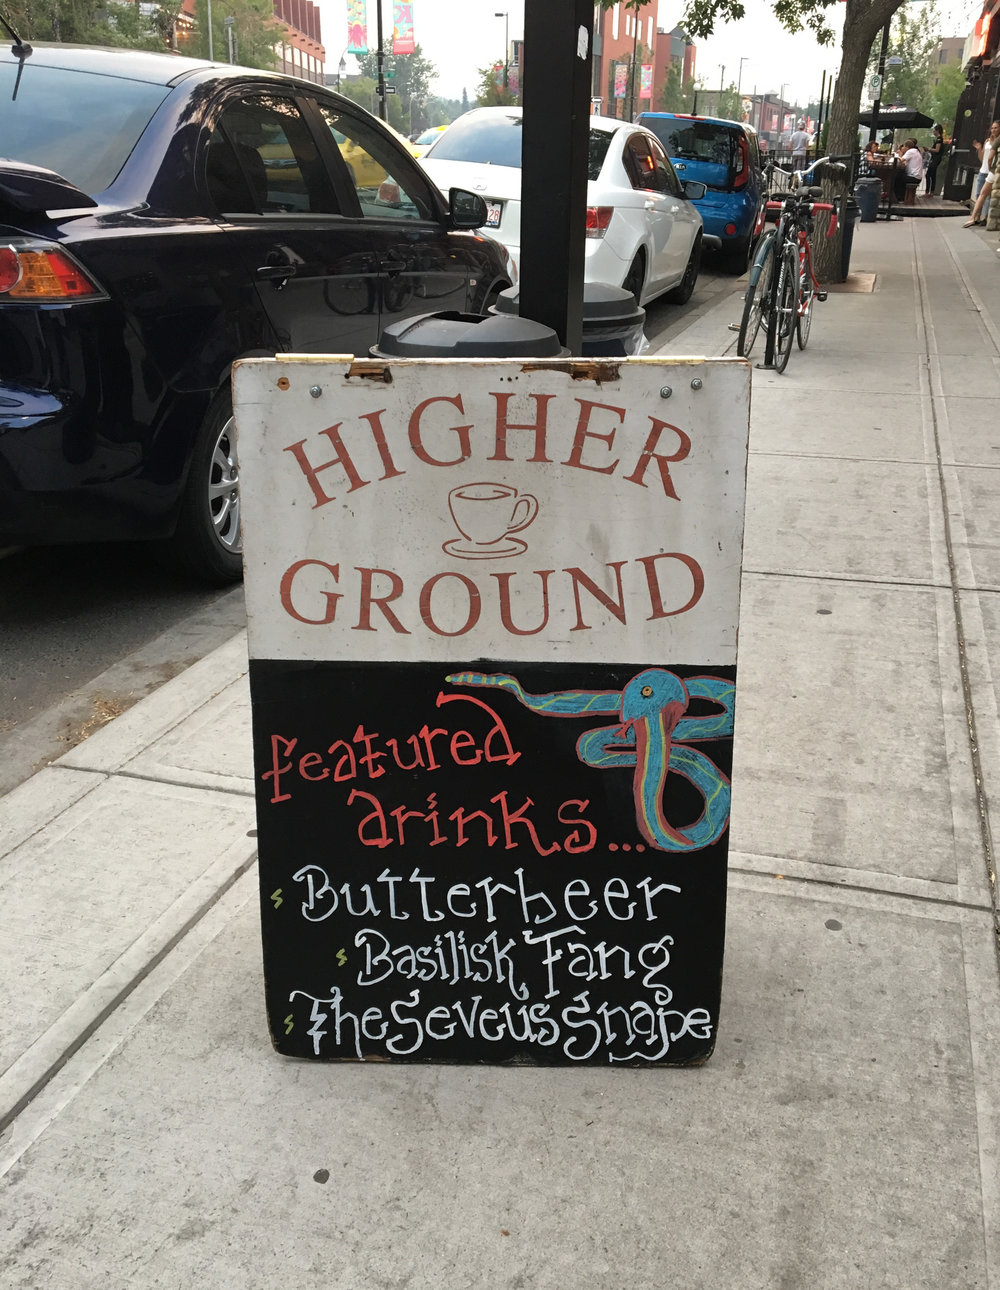 HIGHER
GROUND
featured
drinks...
Butterbeer
Basilisk Fang
The Seveus Snape